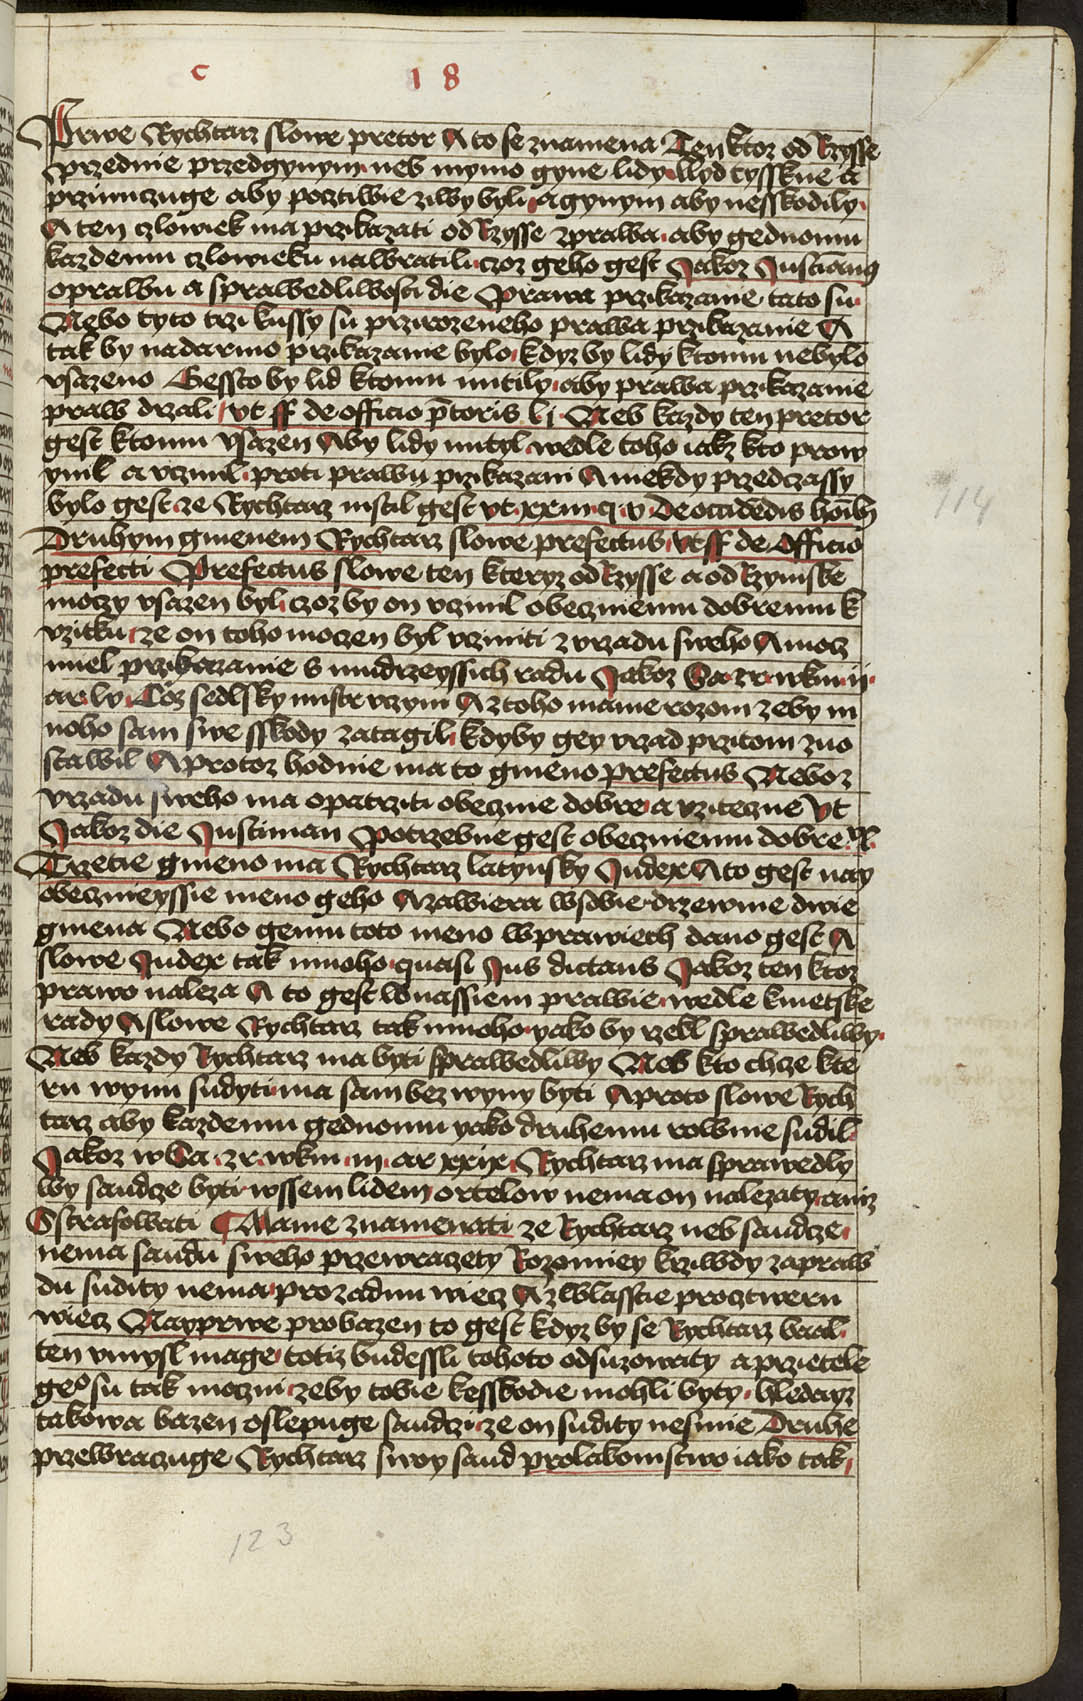 c 18
Prwe Rychtarz slowe pretor A to se znamena Ten ktoz od Rzysse
przednie przedgynym neb mymo gyne lidy lyd tysskne a
przinuczuge aby pocztiwie ziwy byli a gynym aby nesskodily
A ten czlowiek ma przikazati od Rzysse zprawa aby gednomu
kazdemu czlowieku nawratilu czoz geho gest Jakoz Justianus
oprawu a sprawedliwosti die Prawa przikazanie tato su
Nebo tyto trzi kussy su przirozeneho prawa przikazanie A
tak by nadarmo przikazanie bylo kdyz by lidy ktomu nebylo
vsazeno Gessto by lid ktomu nutily aby prawa przikazanie
praw drzali vt ff de officio ptoris l j Neb kazdy ten pretor
gest ktomu vsazen Aby lidy nutyl wedle toho iakz kto prow
ynil a vczinil proti prawu przikazani A niekdy przedczassy
bylo gest ze Rychtarz mstil gest vt xxiii q v De occidedis hoib
Druhym gmenem Rychtarz slowe prefectus vt ff de Officio
prefecti Prefectus slowe ten kteryz od Rzysse a od Rzymske
moczy vsazen byl czoz by on vczinil obeczniemu dobremu k
vzitku ze on toho moczen byl vcziniti z vrzadu sweho A mocz
miel przikazanie s mudrzeyssich radu Jakoz Ca zr wkni ii
ar lv Coz sedlsky mistr vczyni A z toho mame rozom zeby m
noho sam swe sskody zatagil kdyby gey vrzad przitom zuo
stawil A protoz hodnie ma to gmeno prefectus Neboz
vrzadu sweho ma opatrziti obeczne dobre a vziteczne vt
Jakoz die Justinian Potrzebne gest obeczniemu dobre
Trzetie gmeno ma Rychtarz latynsky Judex A to gest nay
obecznieyssie meno geho A zawiera wsobie drzewnie dwie
gmena Nebo gemu toto meno wprawiech dano gest A
slowe Judex tak mnoho quasi Jus dictans Jakoz ten ktoz
prawo naleza A to gest wnassiem prawie wedle kmetske
rady A slowe Rychtarz tak mnoho yako by rzekl sprawedliwy
Neb kazdy Rychtarz ma byti sprawedliwy Neb kto chcze kte
ru wynu sudyti ma sam bez wyny byti A proto slowe Rych
tarz aby kazdemu gednomu yako druhemu rownie sudil
Jakoz w Ca zr wkni iii ar xxix Rychtarz ma sprawedly
wy saudcze byti wssem lidem ortelow nema on nalezaty aniz
Gstrasowati Mame znamenati ze Rychtarz neb saudcze
nema saudu sweho przewraczety Rozomiey krziwdy zapraw
du sudity nema pro zadnu wiecz A zwlasstie pro cztweru
wiecz Nayprwe pro bazen to gest kdyz by se Rychtarz baal
ten vmysl mage totiz budessli tohoto odsuzowaty a przietele
geo su tak moczni zeby tobie kesskodie mohli byty hledayz
takowa bazen oslepuge saudczi ze on sudity nesmie Druhe
przewraczuge Rychtarz swoy saud pro lakomstwo iako tak
114
123